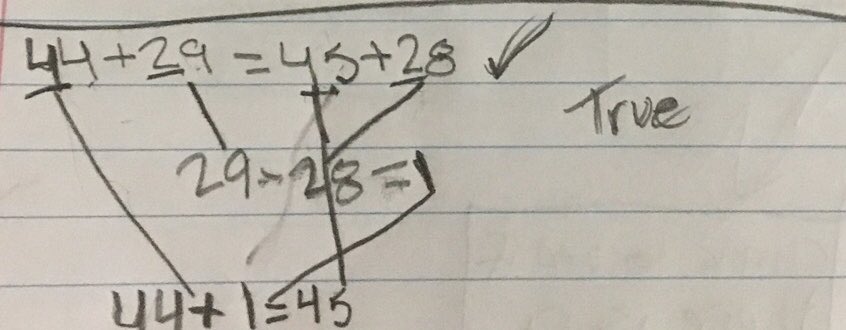 44+29=45+28 ✓
True
29-28=1
44+1=45